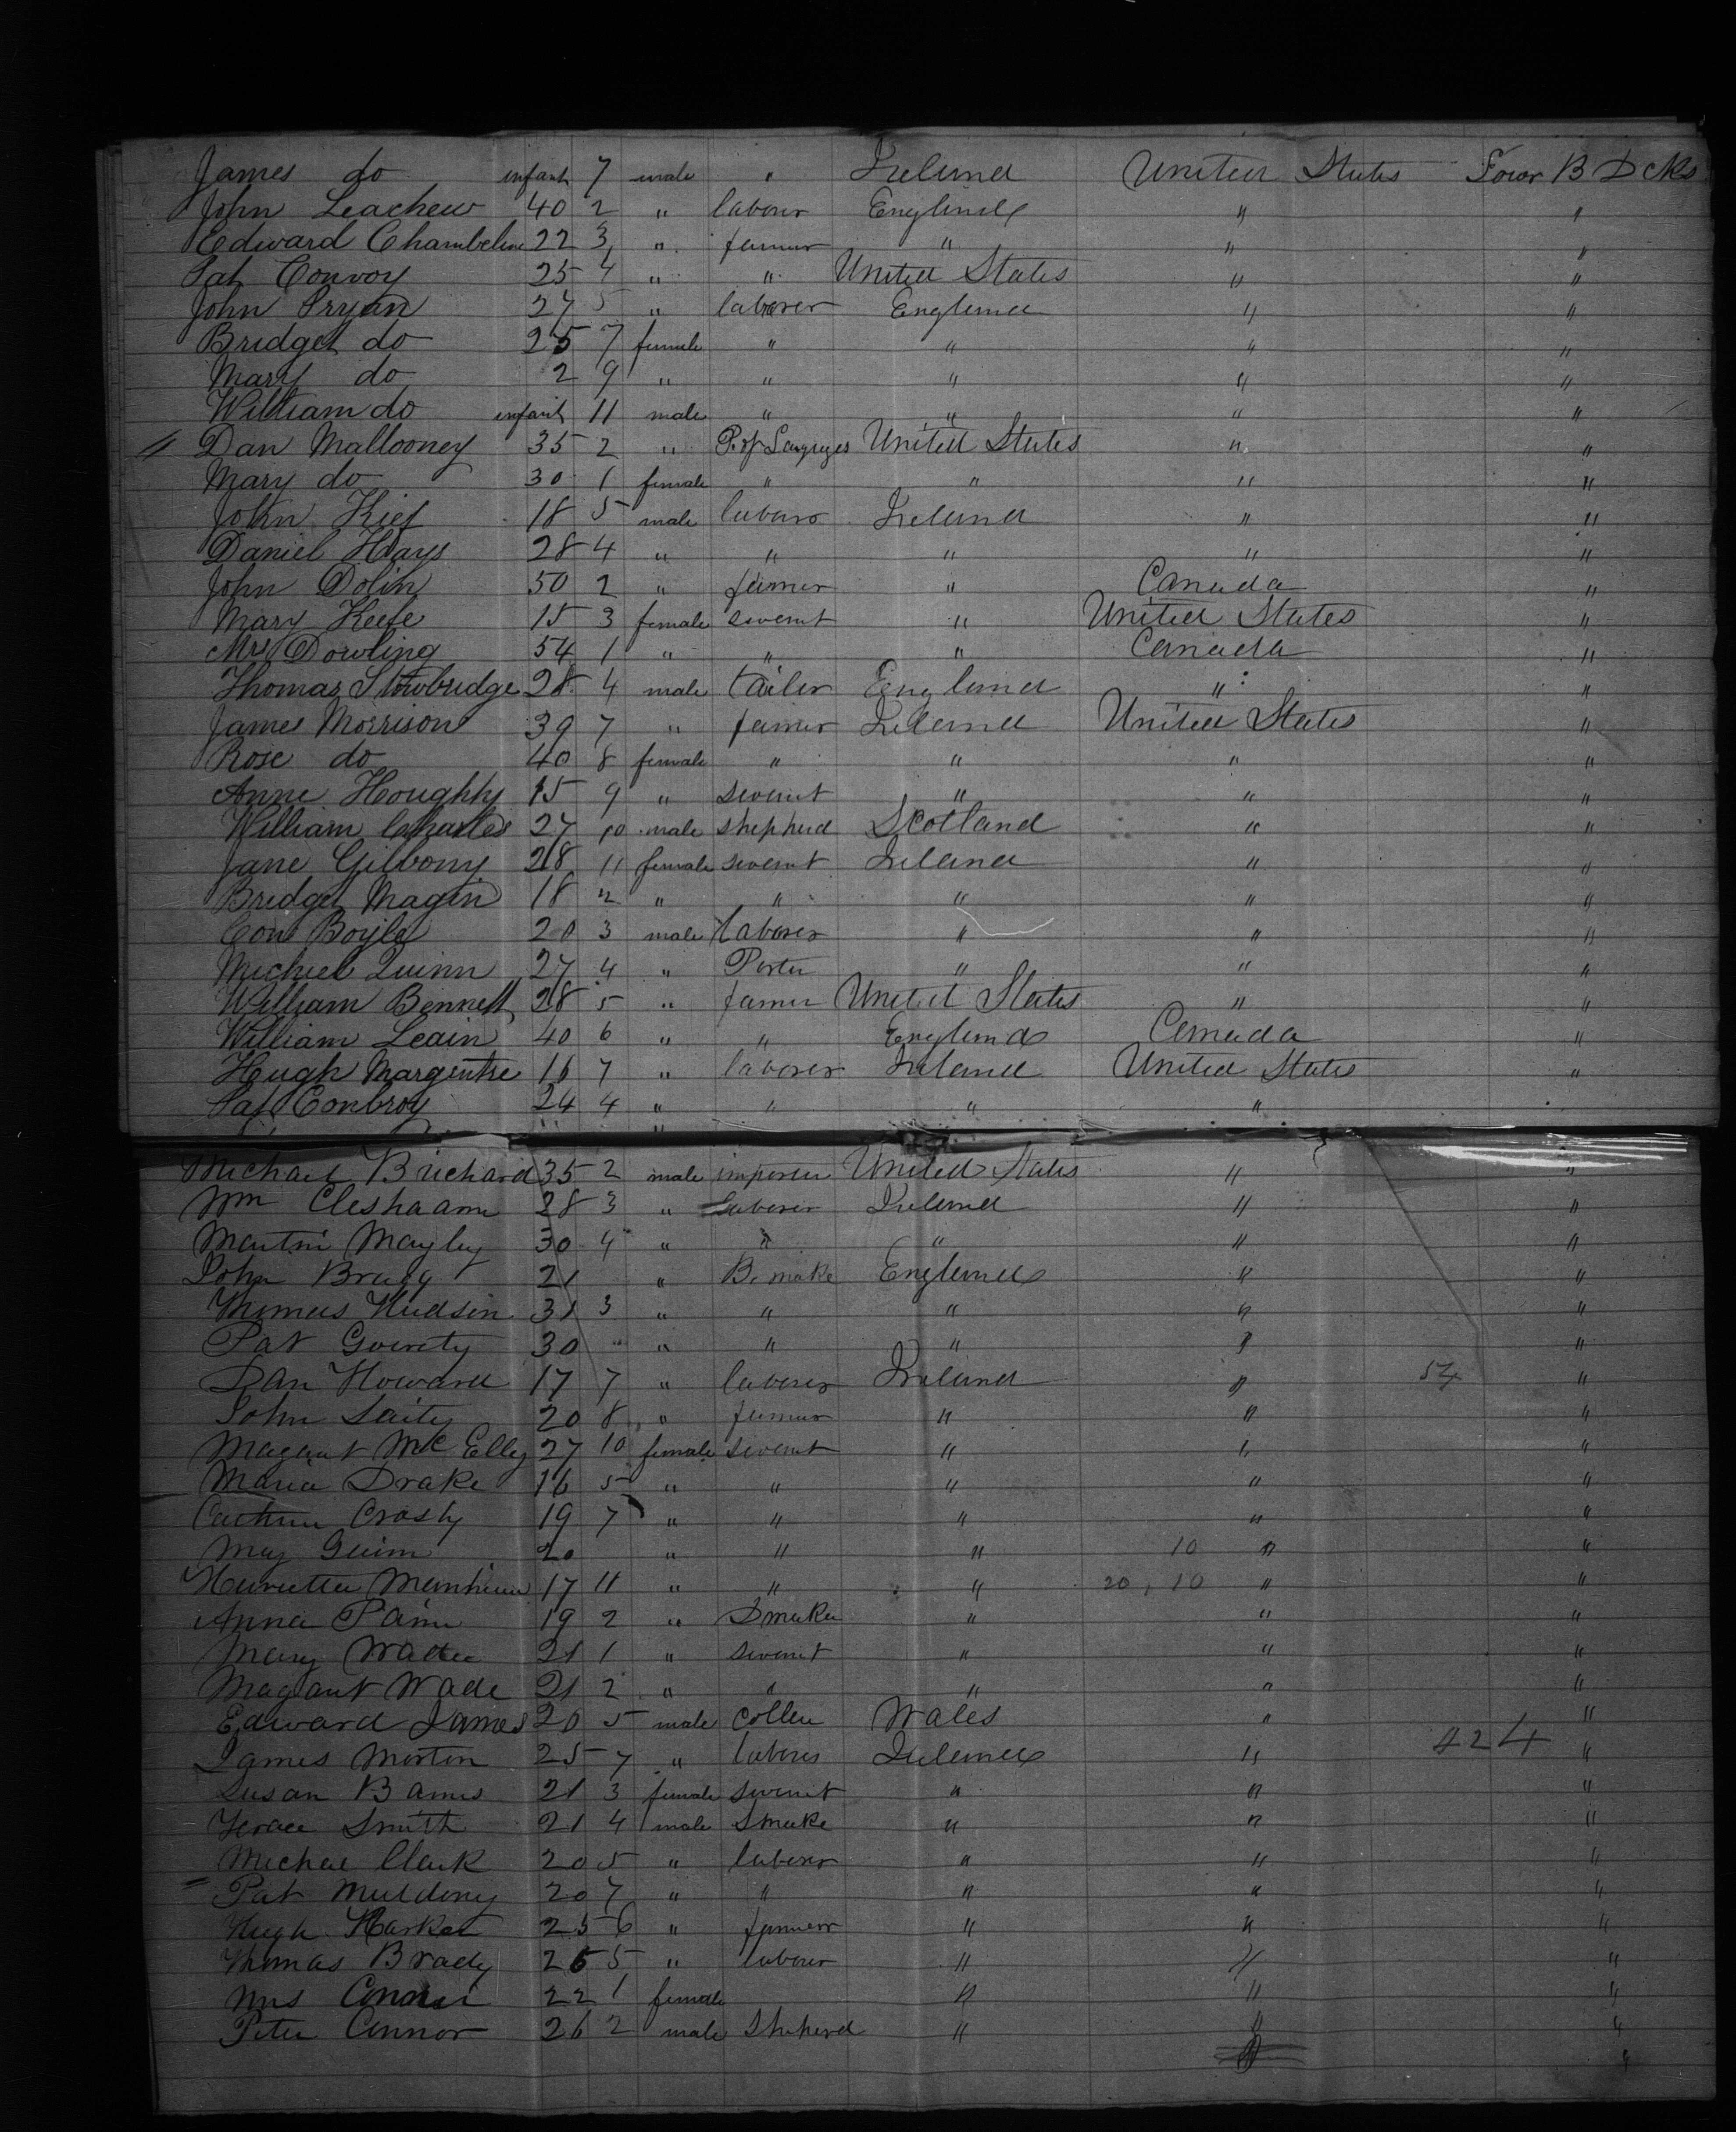 James do infant 7 male " Ireland United States Fowr B Dcks
John Leachew 40 2 " laborer England " "
Edward Chambeline 22 3 " farmer " " "
Pat Convoy 25 4 " " United States " "
John Pryan 27 5 " laborer England " "
Bridget do 25 7 female " " " "
Mary do 2 9 " " " " "
William do infant 11 male " " " "
" Dan Mallooney 35 2 " Prof United States " "
Mary do 30 1 female " " " "
John Kief 18 5 male laborer Ireland " "
Daniel Hays 28 4 " " " " "
John Dolin 50 2 " farmer " Canada "
Mary Keefe 15 3 female servent " United States "
Mrs Dowling 54 1 " " " Canada "
Thomas Stowbridge 28 4 male tailer England " "
James Morrison 39 7 " farmer Ireland United States "
Rose do 40 8 female " " " "
Anne Houghhy 15 9 " servent " " "
William Charles 27 10 male shepherd Scotland " "
Jane Gilbony 28 11 female servent Ireland " "
Bridget Magin 18 2 " " " " "
Con Boyle 20 3 male laborer " " "
Michiel Quinn 27 4 " Porter " " "
William Bennett 28 5 " farmer United States " "
William Leain 40 6 " " England Canada "
Hugh Margentre 16 7 " laborer Ireland United States "
Pat Conbroy 24 4 " " " " "
Michael Brichard 35 2 male importer United States " "
Wm Cleshaam 28 3 " laborer Ireland " "
Martin Mayley 30 4 " " " " "
John Bragg 21 " B. make England " "
Thomas Hudson 31 3 " " " " "
Pat Goverty 30 " " " " " "
Dan Howard 17 7 " laborer Ireland " 54 "
John Laity 20 8 " farmer " " "
Magarut McElly 27 10 female servent " " "
Maria Drake 16 5 " " " " "
Cathrine Crosby 19 7 " " " " "
May Guinn 20 " " " 10 " "
Henrietta 17 11 " " " 20, 10 " "
Anna Paine 19 2 " Dmaker " " "
Mary Wade 21 1 " servent " " "
Magarut Wade 21 2 " " " " "
Edward James 20 5 male Collier Wales " "
James Morton 25 7 " laborer Ireland " 424 "
Susan Barnes 21 3 female servent " " "
Smith 21 4 male Smake " " "
Michae Clark 20 5 " laborer " " "
Pat Muldony 20 7 " " " " "
Hugh Harket 25 6 " farmer " " "
Thomas Brady 26 5 " laborer " " "
Mrs Connor 22 1 female " " "
Peter Connor 26 2 male Sheherd " " "
"